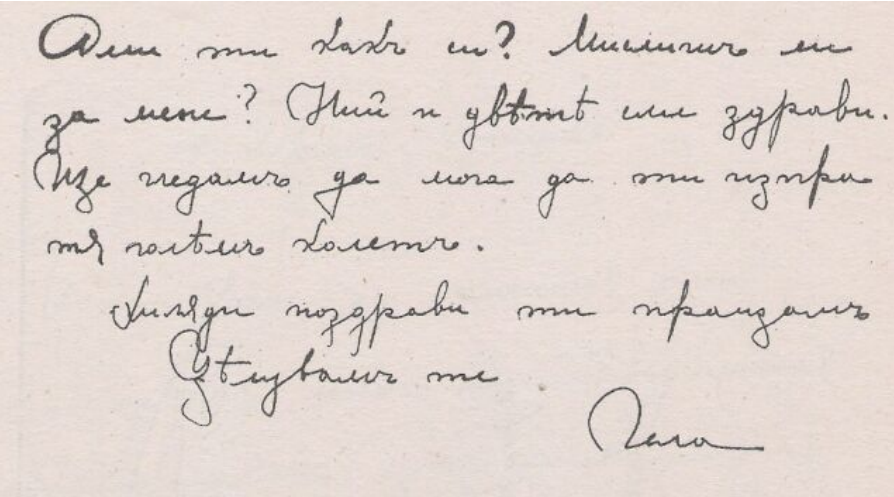 Ами ти какъ си? Мислишъ ли
за мене? Ний и двѣтѣ сме здрави.
Ще гледамъ да мога да ти изпра
тя голѣмъ колетъ.
Хиляди поздрави ти пращамъ
Цѣлувамъ те